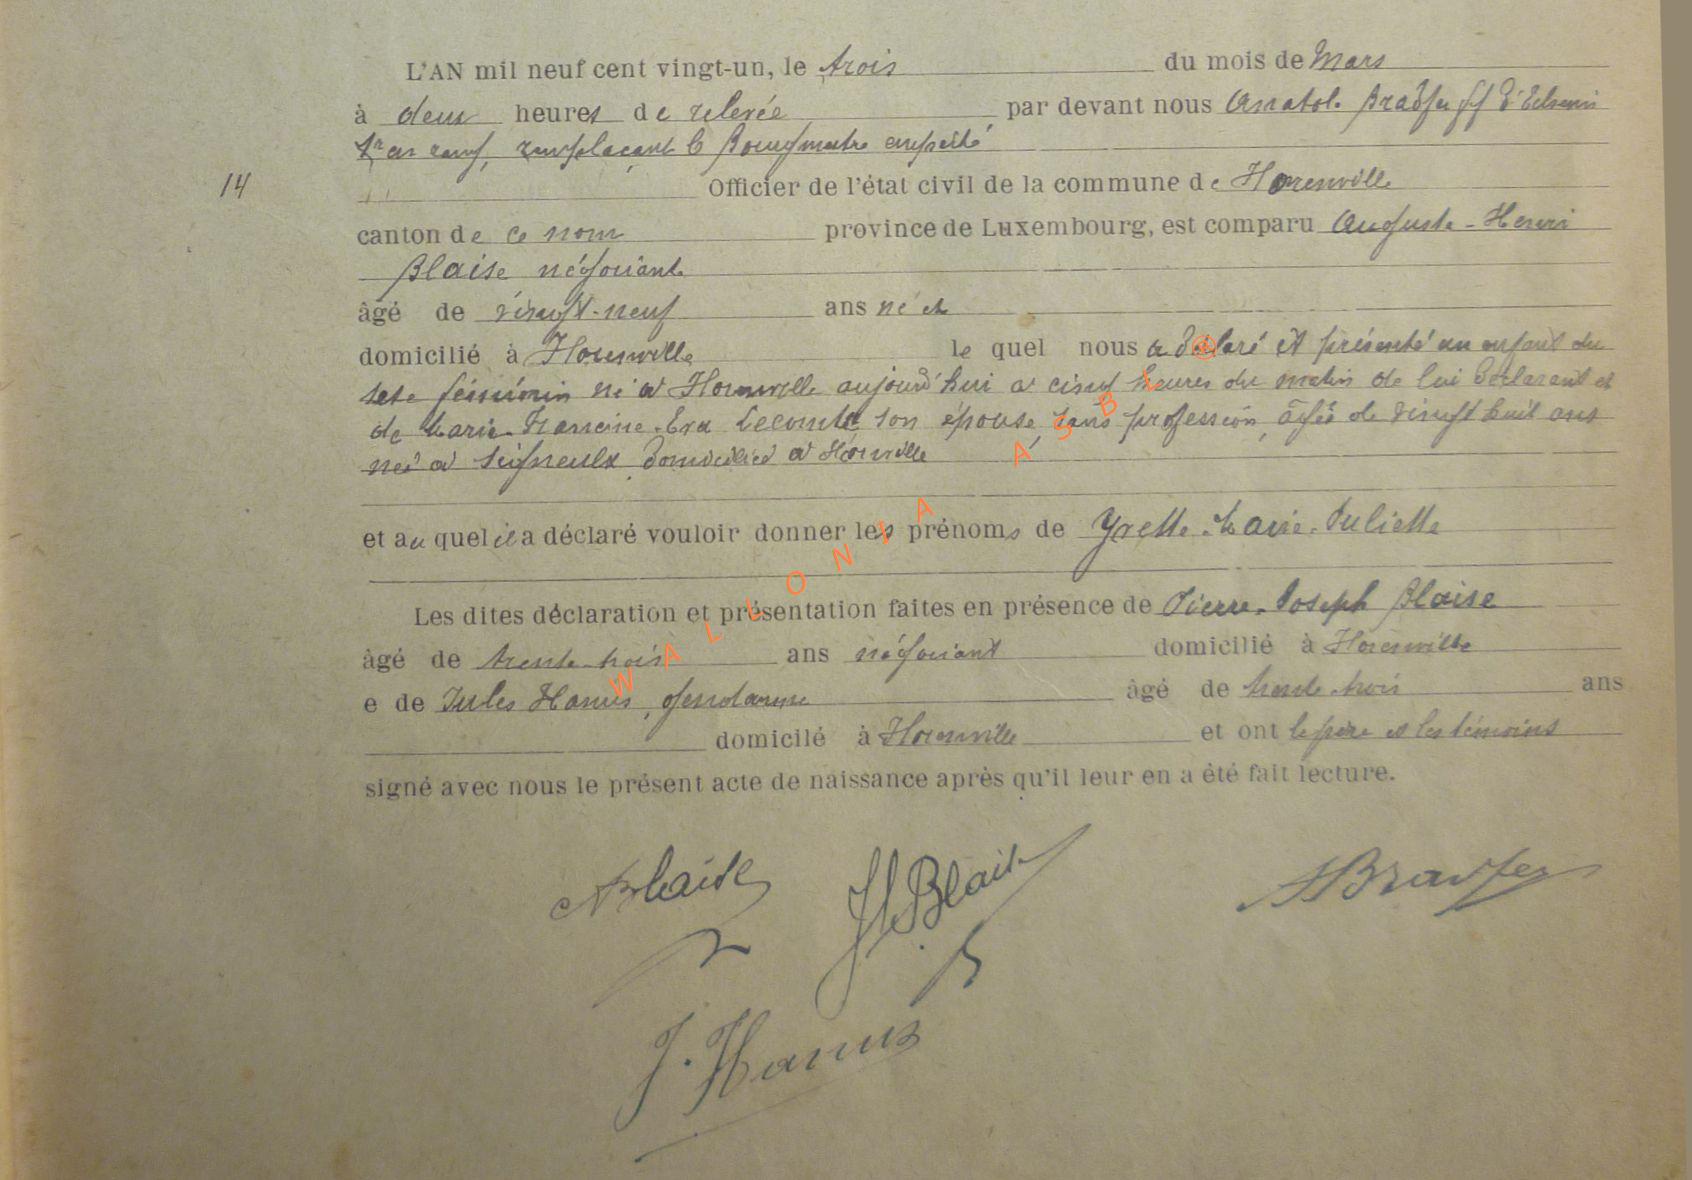 L'AN mil neuf cent vingt-un, le trois du mois de Mars
à deux heures de relevée par devant nous Anatole Bradfer ff d'Echevin
1er en rang, remplaçant le Bourgmestre empêché
14
Officier de l'état civil de la commune de Horrenville
canton de ce nom province de Luxembourg, est comparu Auguste-Henri
Blaise négociant
âgé de vingt-neuf ans né et
domicilié à le quel nous a déclaré et présenté un enfant du
sexe féminin né à aujourd'hui à cinq heures du matin de lui déclarant et
de Marie-Francine-Eva Lecomte son épouse, sans profession, âgée de vingt huit ans
née à domiciliée à
et au quel il a déclaré vouloir donner les prénoms de Yvette-Marie-Juliette
Les dites déclaration et présentation faites en présence de Pierre-Joseph Blaise
âgé de trente-trois ans négociant domicilié à
e de Jules Hanus, gendarme âgé de trente trois ans
domicilé à et ont le père et les témoins
signé avec nous le présent acte de naissance après qu'il leur en a été fait lecture.
ABlaise JBlaise ABradfer
J. Hanus
WALLONIA ASBL @